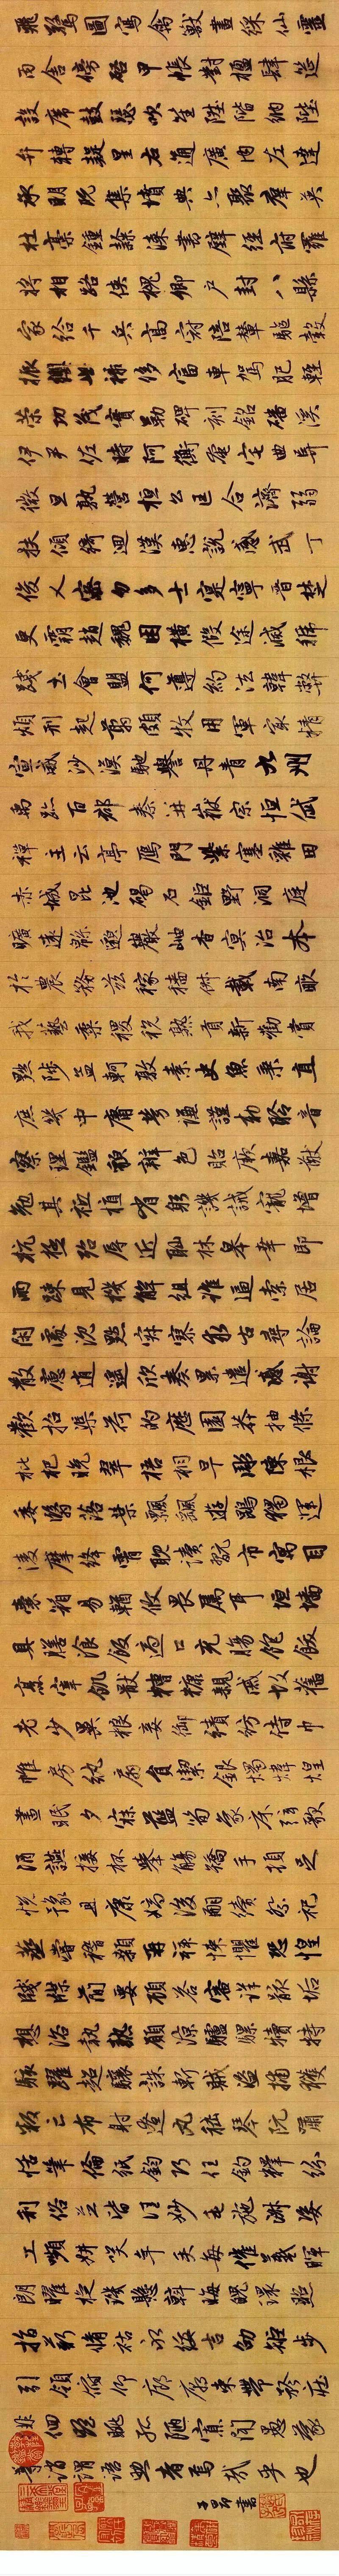 飛驚圖寫禽獸畫綵仙靈
丙舍傍啓甲帳對楹肆筵
設席鼓瑟吹笙陞階納陛
弁轉疑星右通廣內左達
承明既集墳典亦聚群英
杜稾鍾隸漆書壁經府羅
將相路俠槐卿戶封八縣
家給千兵高冠陪輦驅轂
振纓世祿侈富車駕肥輕
策功茂實勒碑刻銘磻溪
伊尹佐時阿衡奄宅曲阜
微旦孰營桓公匡合濟弱
扶傾綺迴漢惠說感武丁
俊乂密勿多士寔寧晉楚
更霸趙魏困橫假途滅虢
踐土會盟何遵約法韓弊
煩刑起翦頗牧用軍最精
宣威沙漠馳譽丹青九州
禹跡百郡秦并嶽宗恒岱
禪主云亭鴈門紫塞雞田
赤城昆池碣石鉅野洞庭
曠遠綿邈巖岫杳冥治本
於農務茲稼穡俶載南畝
我藝黍稷稅熟貢新勸賞
黜陟孟軻敦素史魚秉直
庶幾中庸勞謙謹勑聆音
察理鑑貌辨色貽厥嘉猷
勉其祗植省躬譏誡寵增
抗極殆辱近恥林皋幸即
兩疎見機解組誰逼索居
閑處沉默寂寥求古尋論
散慮逍遙欣奏累遣慼謝
歡招渠荷的歷園莽抽條
枇杷晚翠梧桐早彫陳根
委翳落葉飄颻遊鵾獨運
凌摩絳霄耽讀翫市寓目
囊箱易輶攸畏屬耳垣墻
具膳湌飯適口充腸飽飫
烹宰飢猒糟糠親戚故舊
老少異糧妾御績紡侍巾
帷房紈扇員潔銀燭煒煌
晝眠夕寐藍筍象床絃歌
酒讌接杯舉觴矯手頓足
悅豫且康嫡後嗣續祭祀
蒸嘗稽顙再拜悚懼恐惶
牋牒簡要顧答審詳骸垢
想浴執熱願涼驢騾犢特
駭躍超驤誅斬賊盜捕獲
叛亡布射遼丸嵇琴阮嘯
恬筆倫紙鈞巧任釣釋紛
利俗並皆佳妙毛施淑姿
工顰妍笑年矢每催羲暉
朗曜璇璣懸斡晦魄環照
指薪脩祜永綏吉劭矩步
引領俯仰廊廟束帶矜莊
徘徊瞻眺孤陋寡聞愚蒙
等誚謂語助者焉哉乎也
子昂書